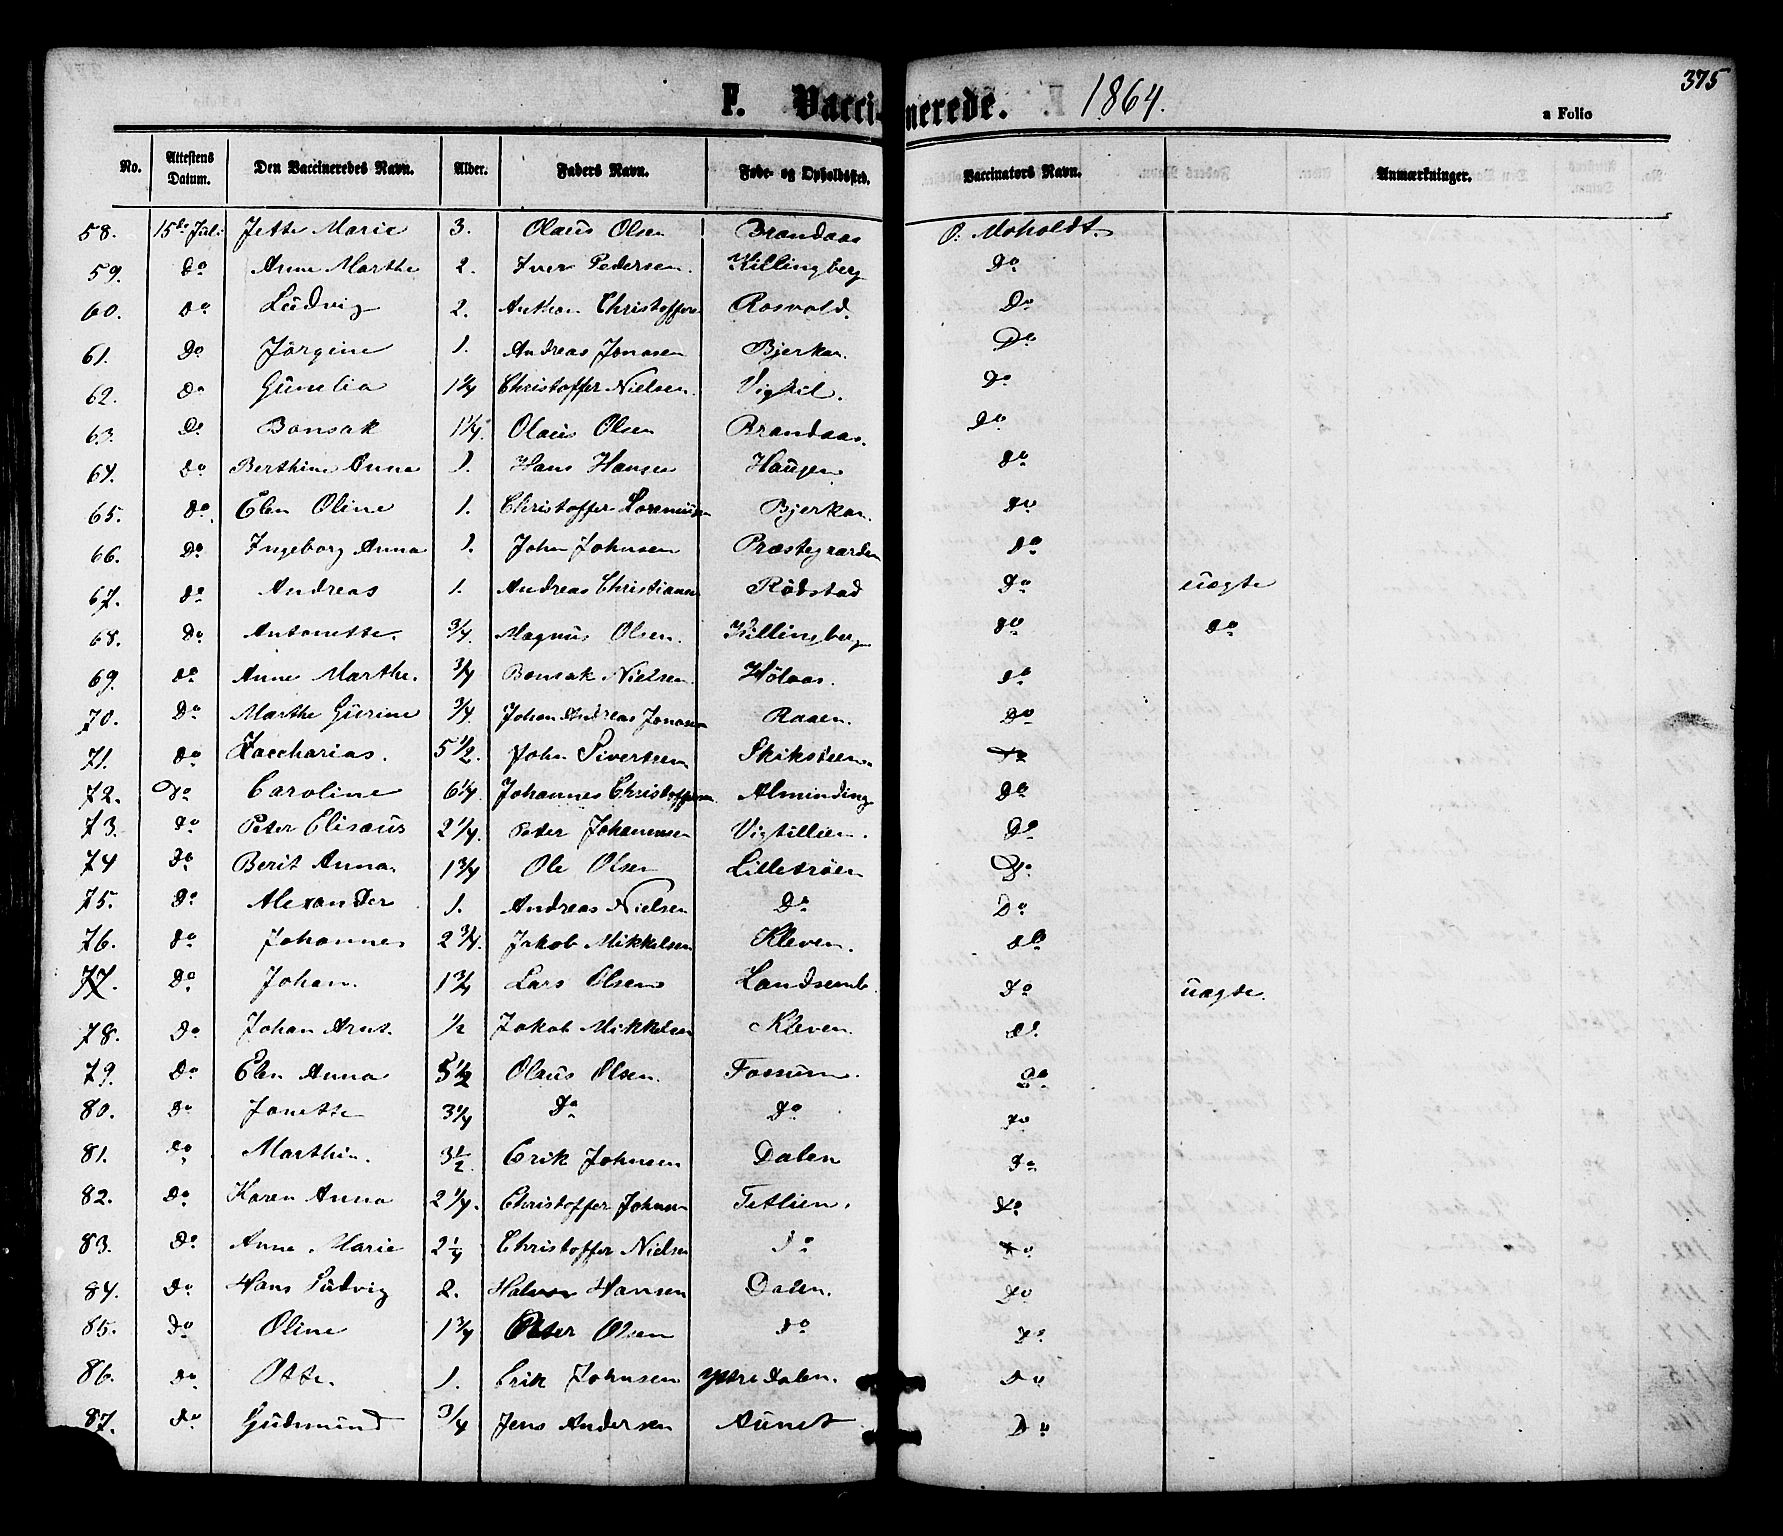 375
F. Vaccinerede. 1864.
a Folio
No. Attestens Datum. Den Vaccineredes Navn. Alder. Faders Navn. Føde- og Opholdssted. Vaccinators Navn. Anmærkninger.
58. 15de Juli Jette Marie 3. Olaus Olsen Brandaas O: Moholdt.
59. Do Anne Marthe 2. Iver Pedersen. Killingberg Do
60. Do Ludvig 2. Anthon Christoffers Rosvold. Do
61. Do Jørgine 1. Andreas Jonasen Bjerkan. Do
62. Do Gunelia 1 1/4 Christoffer Nielsen. Vigtil. Do
63. Do Bonsak 1 1/4. Olaus Olsen Brandaas. Do
64. Do Berthine Anna 1. Hans Hansen Haugen Do
65. Do Elen Oline 1. Christoffer Bjerkan. Do
66. Do Ingeborg Anna 1. John Johnsen Præstegaarden Do
67. Do Andreas 1. Andreas Christiansen Rødstad Do uægte
68. Do Antonette. 3/4. Magnus Olsen. Killingberg Do Do
69. Do Anne Marthe. 3/4 Bonsak Nielsen Hølaas. Do
70. Do Marthe Gurine 3/4. Johan Andreas Jonasen Raaen. Do
71. Do Zaccharias. 5 1/2. John Sivertsen Do
72. Do Caroline 6 1/4. Johannes Christoffersen Alminding Do
73. Do Peter Elisæus 2 1/4. Peter Johannesen Vigtillien. Do
74 Do Berit Anna. 1 3/4 Ole Olsen Lilletrøen Do
75. Do Alexander 1. Andreas Nielsen Do Do
76. Do Johannes 2 3/4. Jakob Mikkelsen Kleven. Do
77. Do Johan. 1 3/4 Lars Olsen Landsemb Do uægte.
78. Do Johan Arnt. 1/2 Jakob Mikkelsen Kleven. Do
79. Do Elen Anna 5 1/2 Olaus Olsen. Fossum. Do
80. Do Jonette 3 1/4 Do Do Do
81. Do Marthin. 3 1/2. Erik Johnsen Dalen Do
82. Do Karen Anna 2 1/4. Christoffer Johnsen Tetlien. Do
83. Do Anne Marie 2 1/4 Christoffer Nielsen Do Do
84. Do Hans Ludvig 2. Halvor Hansen Dalen. Do
85. Do Oline 1 3/4 Peter Olsen Do Do
86. Do Otte. 1. Erik Johnsen Ytredalen. Do
87. Do Gudmund 3/4 Jens Andersen Aunet Do